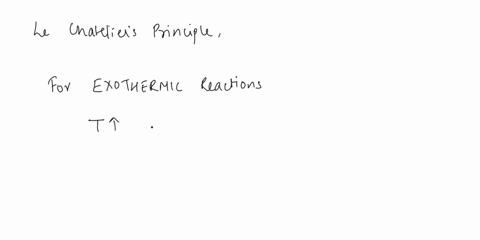 Le Chatelier's Principle,
For EXOTHERMIC Reactions
T↑ .